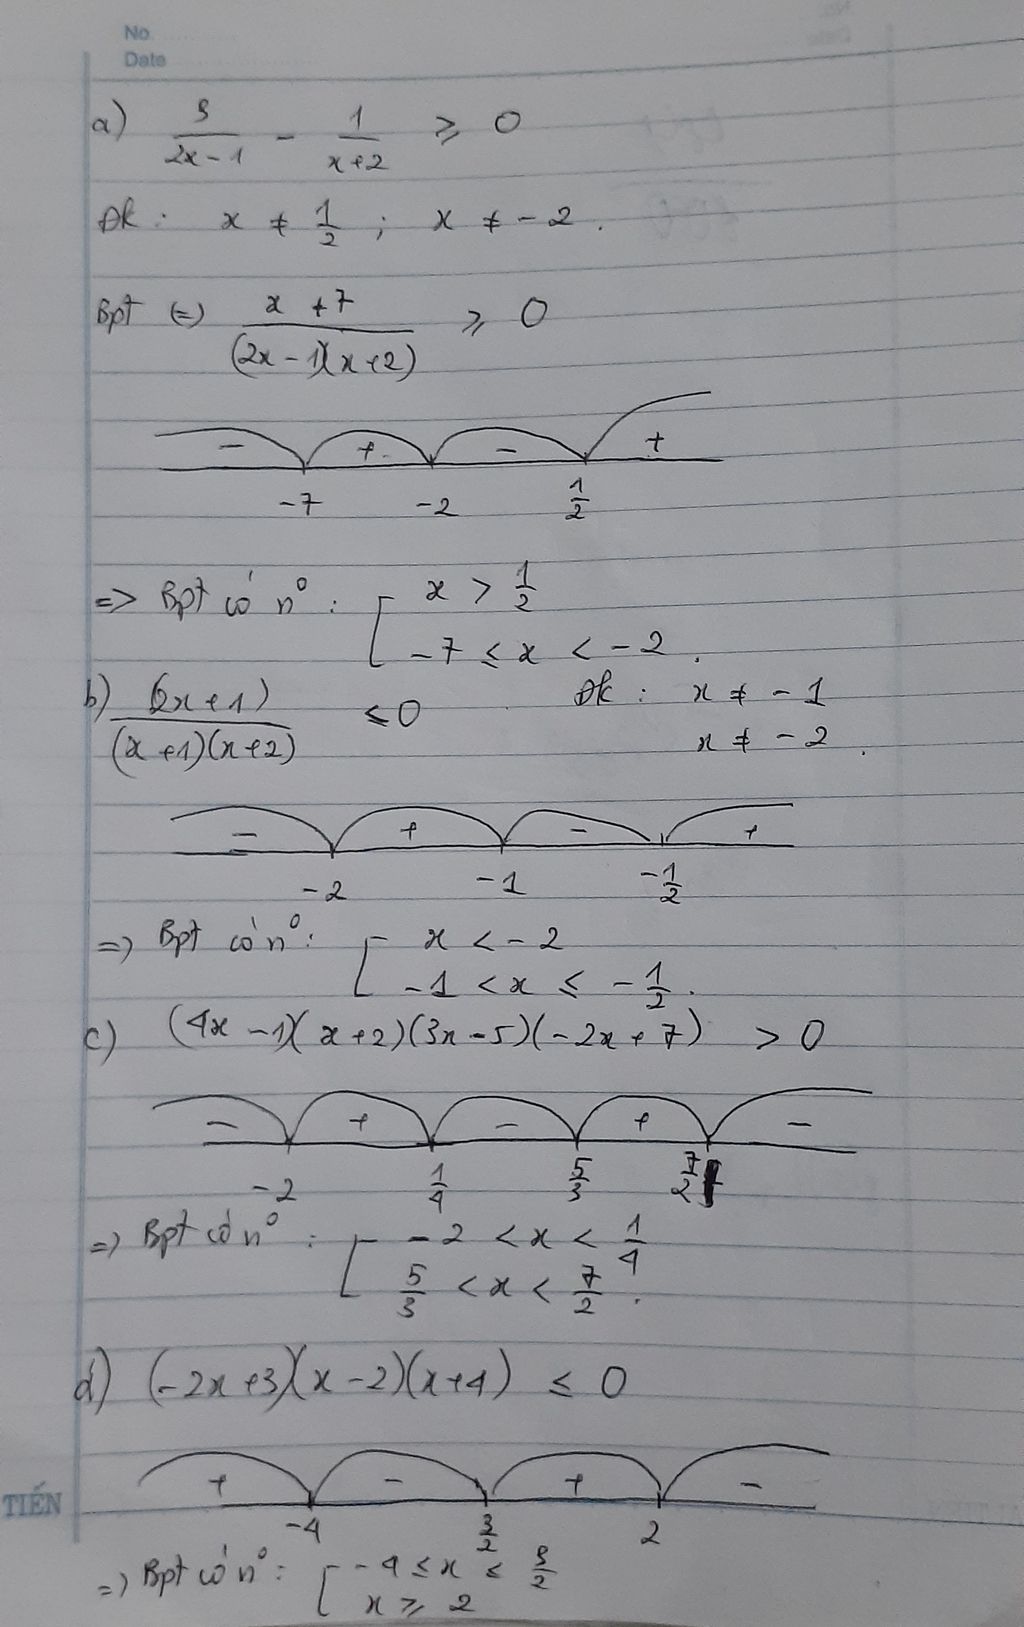 No
Date
a) 3/(2x-1) - 1/(x+2) ≥ 0
Đk : x ≠ 1/2 ; x ≠ -2 .
Bpt (=) (x+7)/((2x-1)(x+2)) ≥ 0
- + - +
-7 -2 1/2
=> Bpt có n⁰ : [ x > 1/2
-7 ≤ x < -2 .
b) (2x+1)/((x+1)(x+2)) ≤ 0 Đk : x ≠ -1
x ≠ -2 .
- + - +
-2 -1 -1/2
=> Bpt có n⁰ : [ x < -2
-1 < x ≤ -1/2 .
c) (4x-1)(x+2)(3x-5)(-2x+7) > 0
- + - + -
-2 1/4 5/3 7/2
=> Bpt có n⁰ : [ -2 < x < 1/4
5/3 < x < 7/2 .
d) (-2x+3)(x-2)(x+4) ≤ 0
+ - + -
TIẾN
-4 3/2 2
=> Bpt có n⁰ : [ -4 ≤ x ≤ 3/2
x ≥ 2